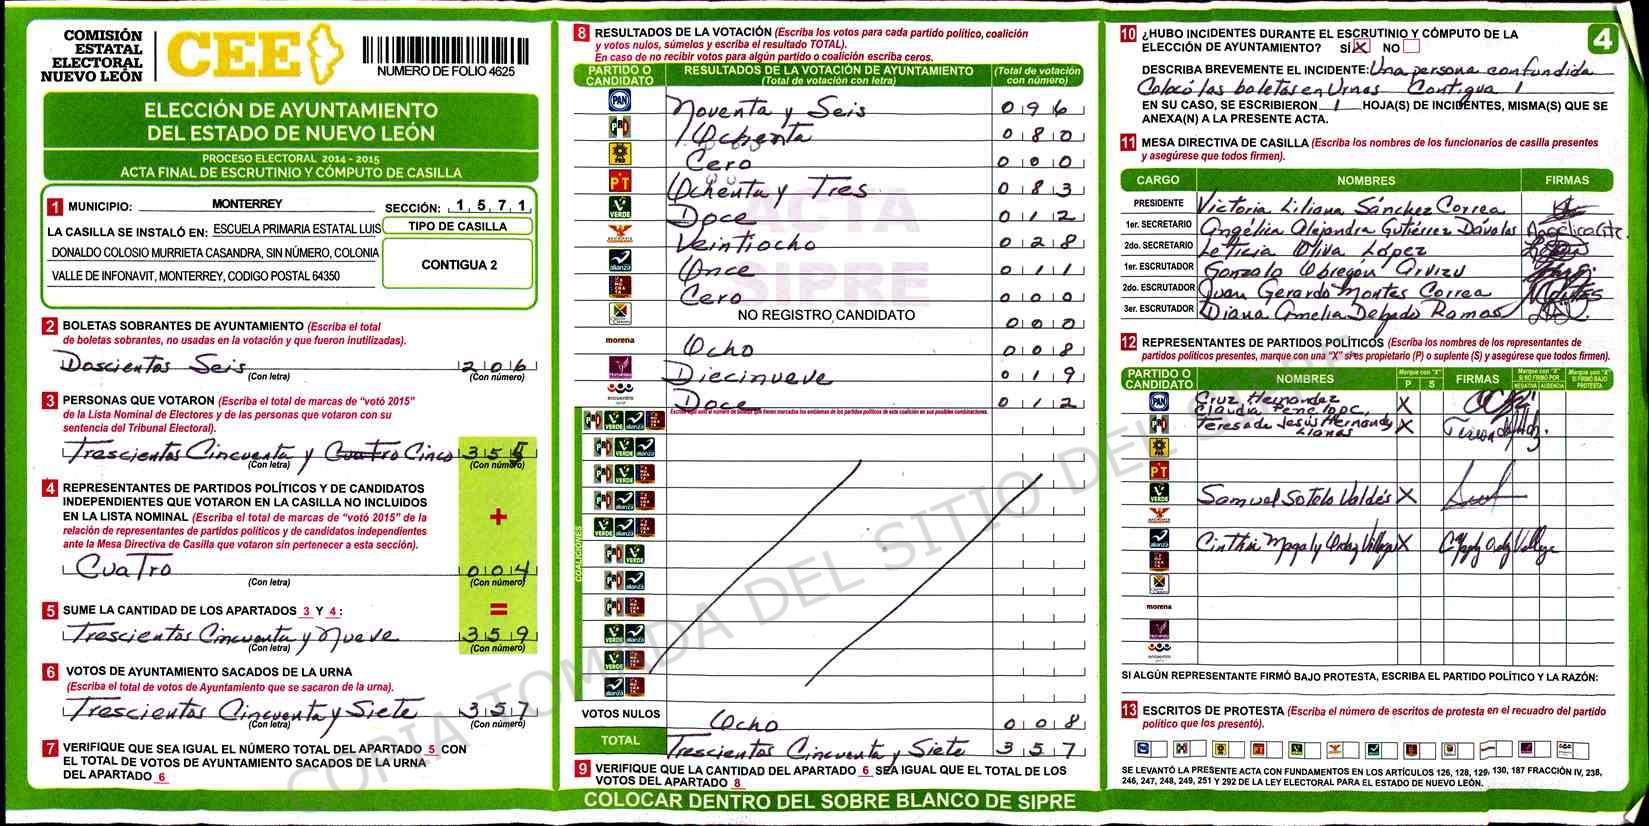 COMISIÓN
ESTATAL
ELECTORAL
NUEVO LEÓN
CEE
NUMERO DE FOLIO 4625
ELECCIÓN DE AYUNTAMIENTO
DEL ESTADO DE NUEVO LEÓN
PROCESO ELECTORAL 2014 - 2015
ACTA FINAL DE ESCRUTINIO Y CÓMPUTO DE CASILLA
1 MUNICIPIO: MONTERREY SECCIÓN: 1 5 7 1
LA CASILLA SE INSTALÓ EN: ESCUELA PRIMARIA ESTATAL LUIS
DONALDO COLOSIO MURRIETA CASANDRA, SIN NÚMERO, COLONIA
VALLE DE INFONAVIT, MONTERREY, CODIGO POSTAL 64350
TIPO DE CASILLA
CONTIGUA 2
2 BOLETAS SOBRANTES DE AYUNTAMIENTO (Escriba el total
de boletas sobrantes, no usadas en la votación y que fueron inutilizadas).
Doscientos Seis 2 0 6
(Con letra) (Con número)
3 PERSONAS QUE VOTARON (Escriba el total de marcas de "votó 2015"
de la Lista Nominal de Electores y de las personas que votaron con su
sentencia del Tribunal Electoral).
Trescientos Cincuenta y Cuatro Cinco 3 5 5
(Con letra) (Con número)
4 REPRESENTANTES DE PARTIDOS POLÍTICOS Y DE CANDIDATOS
INDEPENDIENTES QUE VOTARON EN LA CASILLA NO INCLUIDOS
EN LA LISTA NOMINAL (Escriba el total de marcas de "votó 2015" de la
relación de representantes de partidos políticos y de candidatos independientes
ante la Mesa Directiva de Casilla que votaron sin pertenecer a esta sección).
+
Cuatro 0 0 4
(Con letra) (Con número)
5 SUME LA CANTIDAD DE LOS APARTADOS 3 Y 4: =
Trescientos Cincuenta y Nueve 3 5 9
(Con letra) (Con número)
6 VOTOS DE AYUNTAMIENTO SACADOS DE LA URNA
(Escriba el total de votos de Ayuntamiento que se sacaron de la urna).
Trescientos Cincuenta y Siete 3 5 7
(Con letra) (Con número)
7 VERIFIQUE QUE SEA IGUAL EL NÚMERO TOTAL DEL APARTADO 5 CON
EL TOTAL DE VOTOS DE AYUNTAMIENTO SACADOS DE LA URNA
DEL APARTADO 6
8 RESULTADOS DE LA VOTACIÓN (Escriba los votos para cada partido político, coalición
y votos nulos, súmelos y escriba el resultado TOTAL).
En caso de no recibir votos para algún partido o coalición escriba ceros.
PARTIDO O CANDIDATO RESULTADOS DE LA VOTACIÓN DE AYUNTAMIENTO (Total de votación con letra) (Total de votación con número)
PAN Noventa y Seis 0 9 6
PRD Ochenta 0 8 0
PRD Cero 0 0 0
PT Ochenta y Tres 0 8 3
VERDE Doce 0 1 2
Veintiocho 0 2 8
alianza Once 0 1 1
Cero 0 0 0
NO REGISTRO CANDIDATO 0 0 0
morena Ocho 0 0 8
Diecinueve 0 1 9
encuentro Doce 0 1 2
ACTA
SIPRE
COALICIONES
VOTOS NULOS Ocho 0 0 8
TOTAL Trescientos Cincuenta y Siete 3 5 7
9 VERIFIQUE QUE LA CANTIDAD DEL APARTADO 6 SEA IGUAL QUE EL TOTAL DE LOS
VOTOS DEL APARTADO 8
COLOCAR DENTRO DEL SOBRE BLANCO DE SIPRE
10 ¿HUBO INCIDENTES DURANTE EL ESCRUTINIO Y CÓMPUTO DE LA
ELECCIÓN DE AYUNTAMIENTO? SÍ X NO
4
DESCRIBA BREVEMENTE EL INCIDENTE: Una persona confundida
Colocó las boletas en Urnas Contigua 1
EN SU CASO, SE ESCRIBIERON 1 HOJA(S) DE INCIDENTES, MISMA(S) QUE SE
ANEXA(N) A LA PRESENTE ACTA.
11 MESA DIRECTIVA DE CASILLA (Escriba los nombres de los funcionarios de casilla presentes
y asegúrese que todos firmen).
CARGO NOMBRES FIRMAS
PRESIDENTE Victoria Liliana Sánchez Correa
1er. SECRETARIO Angélica Alejandra Gutiérrez Dávalos
2do. SECRETARIO Leticia Oliva López
1er. ESCRUTADOR Gonzalo Obregón Arvizu
2do. ESCRUTADOR Juan Gerardo Montes Correa
3er. ESCRUTADOR Diana Amelia Delgado Ramos
12 REPRESENTANTES DE PARTIDOS POLÍTICOS (Escriba los nombres de los representantes de
partidos políticos presentes, marque con una "X" si es propietario (P) o suplente (S) y asegúrese que todos firmen).
PARTIDO O CANDIDATO NOMBRES Marque con "X" P S FIRMAS Marque con "X" SI NO FIRMÓ POR NEGATIVA AUSENCIA Marque con "X" SI FIRMÓ BAJO PROTESTA
PAN Cruz Hernandez
Claudia Penelope X
Teresa de Jesús Hernandez
Llanas X
PT
VERDE Samuel Sotelo Valdés X
alianza Cinthia Magaly Ordaz X
morena
encuentro
SI ALGÚN REPRESENTANTE FIRMÓ BAJO PROTESTA, ESCRIBA EL PARTIDO POLÍTICO Y LA RAZÓN:
13 ESCRITOS DE PROTESTA (Escriba el número de escritos de protesta en el recuadro del partido
político que los presentó).
SE LEVANTÓ LA PRESENTE ACTA CON FUNDAMENTOS EN LOS ARTÍCULOS 126, 128, 129, 130, 187 FRACCIÓN IV, 238,
246, 247, 248, 249, 251 Y 292 DE LA LEY ELECTORAL PARA EL ESTADO DE NUEVO LEÓN.
COPIA TOMADA DEL SITIO DEL